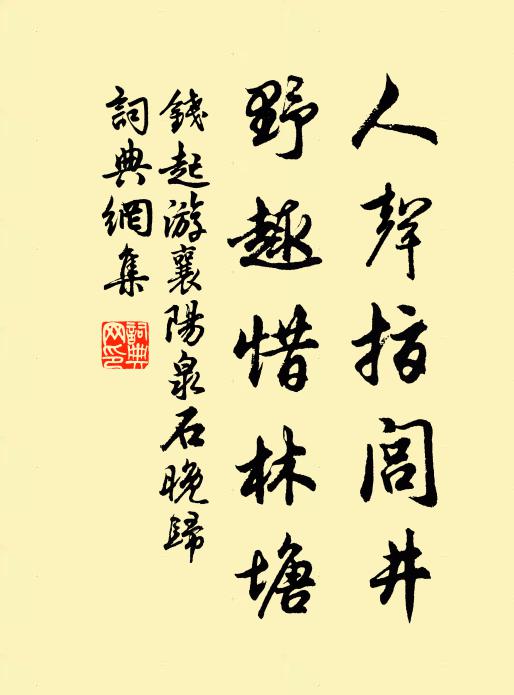 人聲指閭井
野趣惜林塘
錢起游襄陽泉石晚歸
詞典網集
詞典
网印